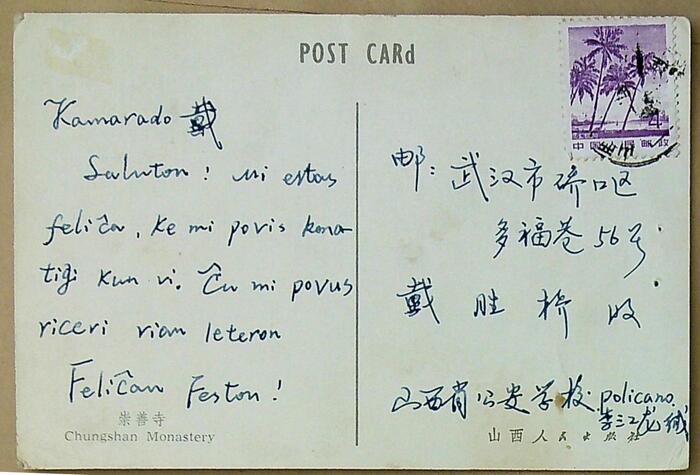 POST CARd
Kamarado 戴
Saluton! mi estas
feliĉa, ke mi povis kona-
tiĝi kun vi. Ĉu mi povus
riceri vian leteron
Feliĉan Feston!
崇善寺
Chungshan Monastery
4
中国人民邮政
邮: 武汉市硚口区
多福巷56号
戴胜桥收
山西省公安学校 policano.
李江龙缄
山西人民出版社